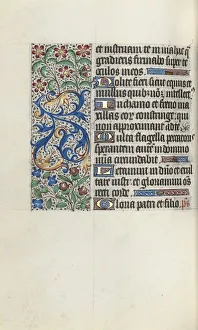 et instruam te in via hac q̄
gradieris firmabo super te
oculos meos.
Nolite fieri sicut equus et
mulus quib; nō ē intellect̄
In chamo et freno ma
xillas eor̄ constringe qui
non approximant ad te.
Multa flagella peccatoris
sperantem autē in domino
misericordia circumdabit
et exul
tate iusti et gloriamini oēs
recti corde.
Gloria patri et filio. ps